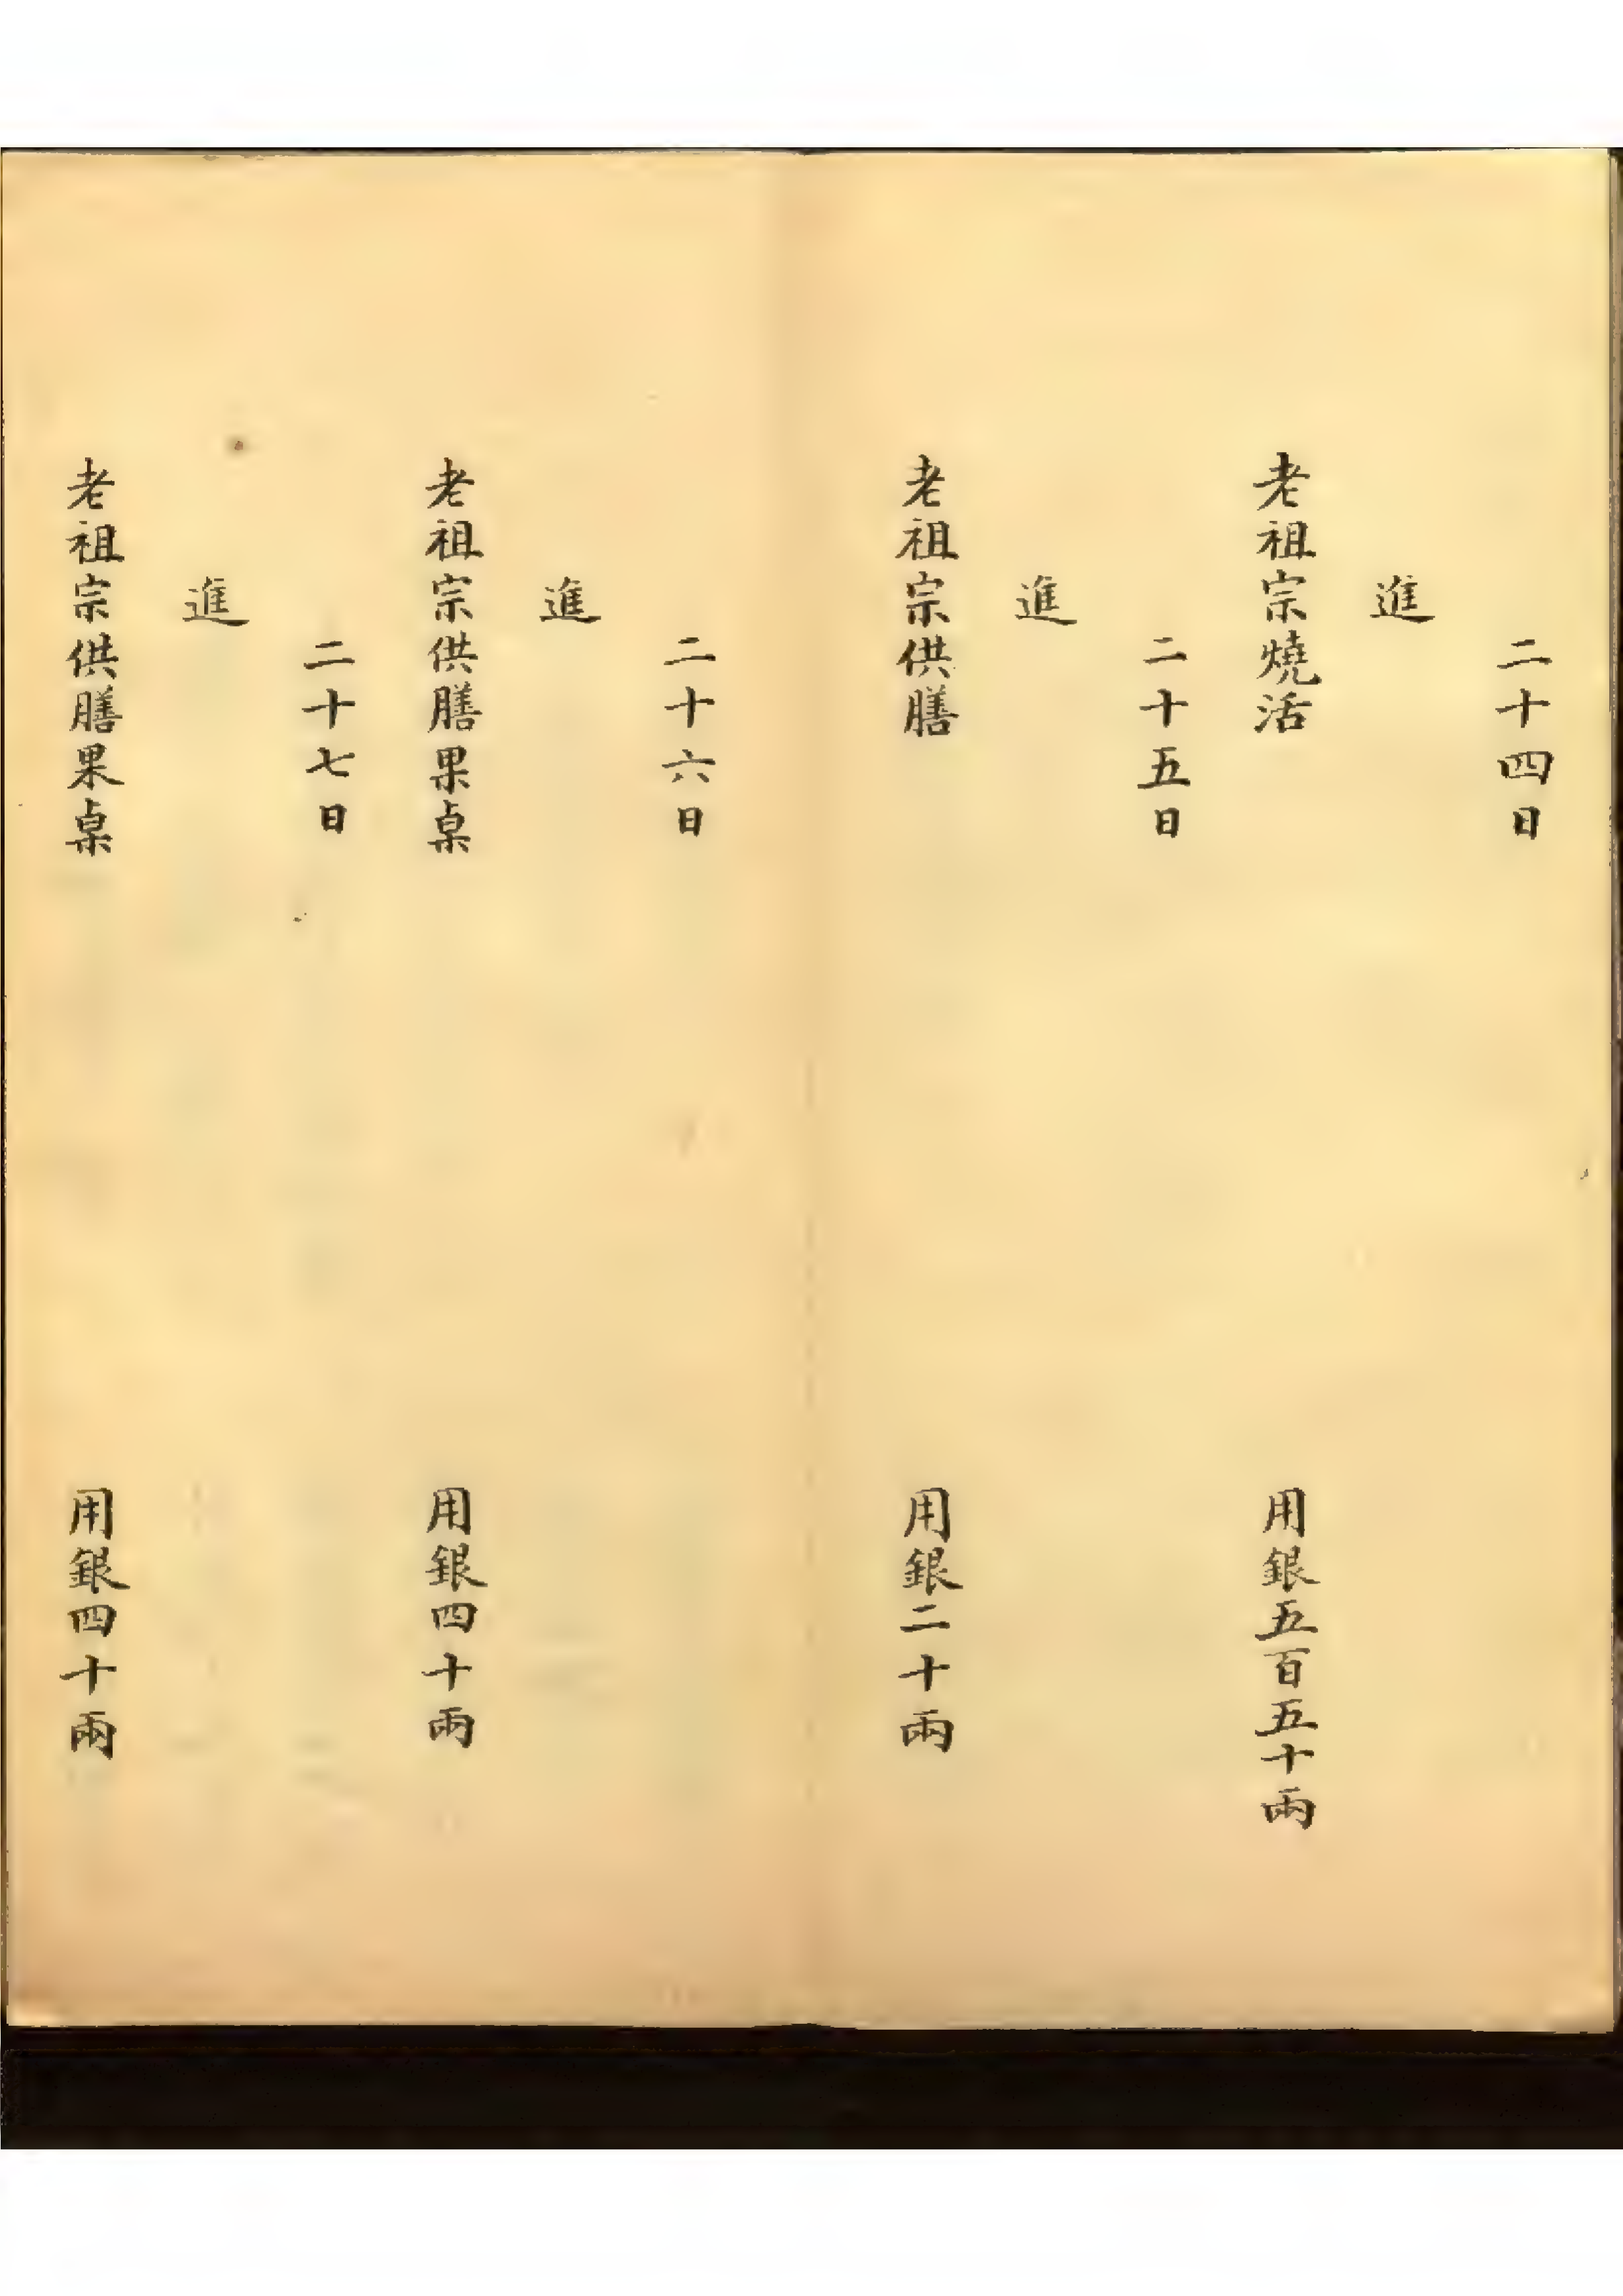 二十四日
進
老祖宗燒活 用銀五百五十兩
二十五日
進
老祖宗供膳 用銀二十兩
二十六日
進
老祖宗供膳果桌 用銀四十兩
二十七日
進
老祖宗供膳果桌 用銀四十兩